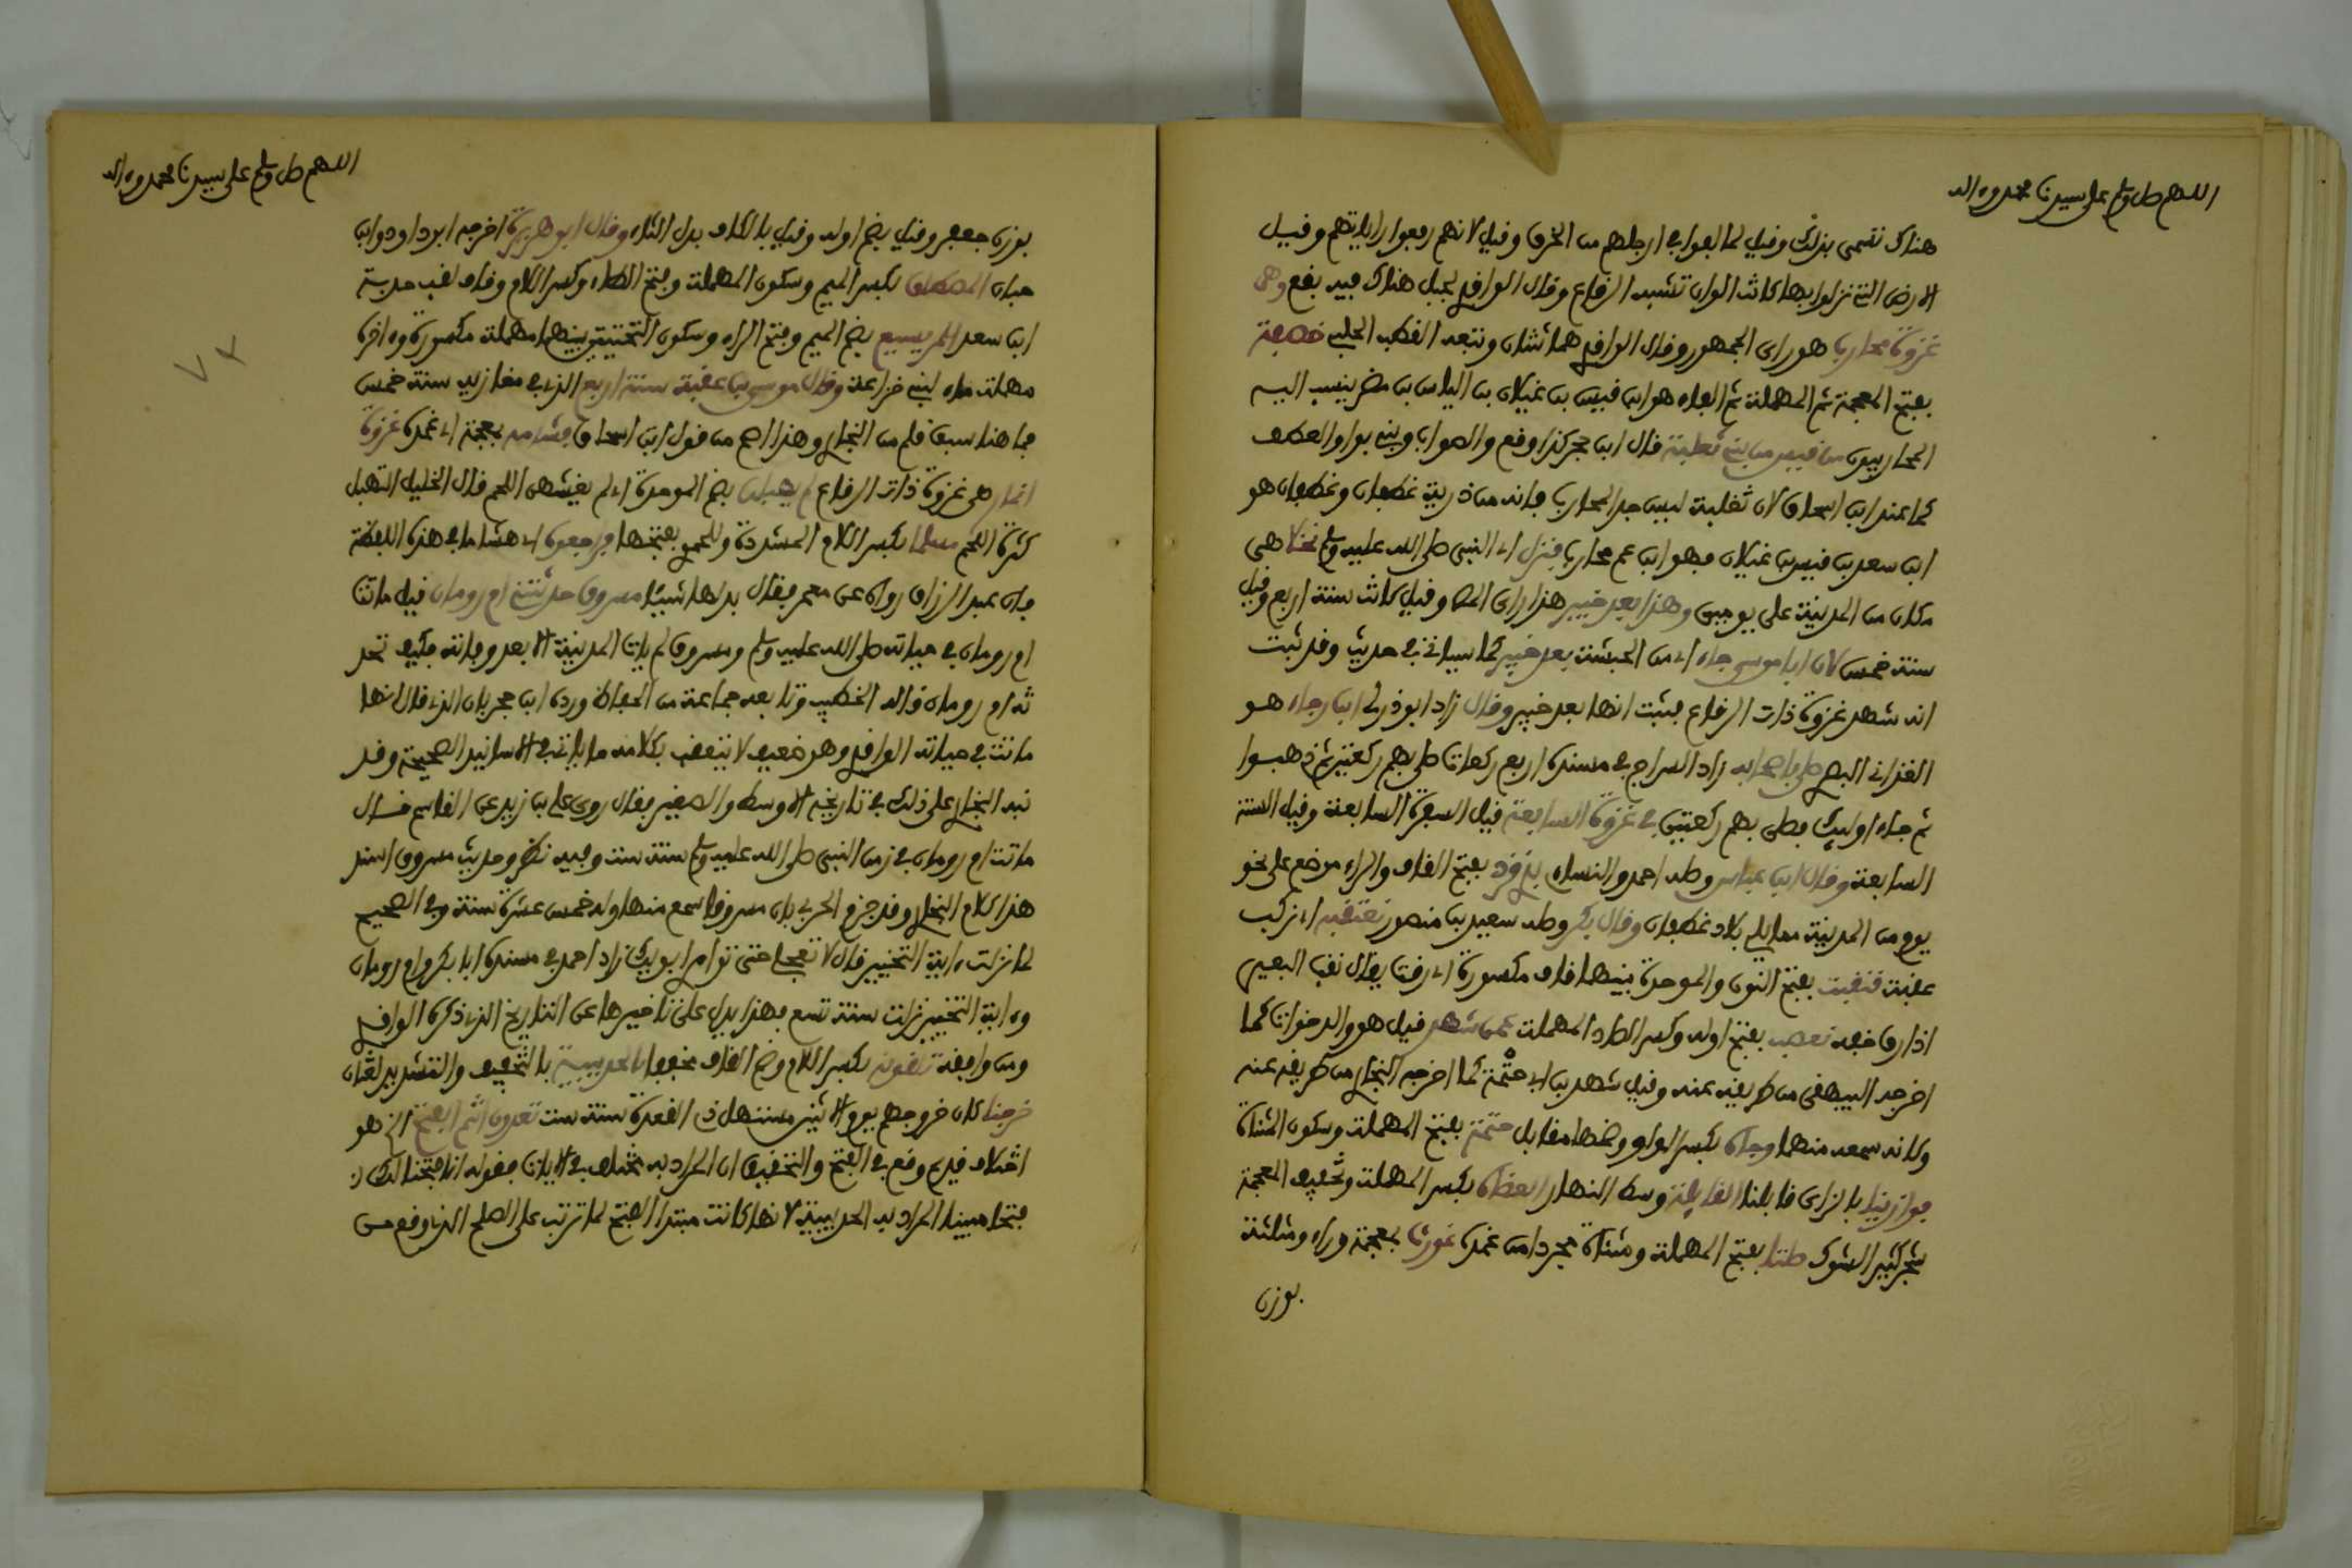 اللهم صل وسلم على سيدنا محمد وءاله
هناك تسمى بذلك وقيل لما لفوا في ارجلهم من الخرق وقيل لانهم رقعوا راياتهم وقيل
الارض التي نزلوا بها كانت الوان تشبه الرقاع وقال الواقدي لجبل هناك فيه بقع وهي
غزوة محارب هو راى الجمهور وقال الواقدي هما ثنتان وتبعه القطب الحلبي خصفة
بفتح المعجمة ثم المهملة ثم الفاء هو ابن قيس بن غيلان بن الياس بن مضر ينسب اليه
المحاربيون من قيس من بني ثعلبة قال ابن حجر كذا وقع والصواب وبني بواو العطف
كما عند ابن اسحاق لان ثعلبة ليس جد المحارب فانه من ذرية غطفان وغطفان هو
ابن سعد بن قيس بن غيلان فهو ابن عم محارب فنزل اي النبي صلى الله عليه وسلم نخلا هي
مكان من المدينة على يومين وهذا بعد خيبر هذا راى المص وقيل كانت سنة اربع وقيل
سنة خمس لان ابا موسى جاء اي من الحبشة بعد خيبر كما سياتي في حديث وقد ثبت
انه شهد غزوة ذات الرقاع فيثبت انها بعد خيبر وقال زاد ابو ذر لي ابن رجاء هو
الغداني البصري باصحابه زاد السراج في مسنده اربع ركعات صلى بهم ركعتين ثم ذهبوا
ثم جاء اوليك فصلى بهم ركعتين في غزوة السابعة قيل السفرة السابعة وقيل السنة
السابعة وقال ابن عباس وصله احمد والنساءي بذي قرد بفتح القاف والراء موضع على نحو
يوم من المدينة مما يلي بلاد غطفان وقال بكر وصله سعيد بن منصور نعتقبه اي نركب
عقبة فنقبت بفتح النون والموحدة بينهما قاف مكسورة اي رقت يقال نقب البعير
اذا رق خفه نعصب بفتح اوله وكسر الصاد المهملة عمن شهد قيل هو والد خوات كما
اخرجه البيهقي من طريقه عنه وقيل سهل بن ابي حثمة كما اخرجه البخاري من طريقه عنه
وكانه سمعه منهما وجاه بكسر الواو وضمها مقابل حثمة بفتح المهملة وسكون المثناة
فوازينا بالزاي قابلنا القايلة وسط النهار العضاه بكسر المهملة وتخفيف المعجمة
شجر كثير الشوك صلتا بفتح المهملة ومثناة مجردا من غمده غورث بمعجمة وراء ومثلثة
بوزن
اللهم صل وسلم على سيدنا محمد وءاله
بوزن جعفر وقيل بضم اوله وقيل بالكاف بدل الثاء وقال ابو هريرة اخرجه ابو داود وابن
حبان المصطلق بكسر الميم وسكون المهملة وفتح الطاء وكسر اللام وقاف لقب جذيمة
ابن سعد المريسيع بضم الميم وفتح الراء وسكون التحتيتين بينهما مهملة مكسورة وءاخره
مهملة ماء لبني خزاعة وقال موسى بن عقبة سنة اربع الذي في مغازيه سنة خمس
فما هنا سبق قلم من البخاري وهذا اصح من قول ابن اسحاق فشامه بمعجمة اي غمده غزوة
انمار هي غزوة ذات الرقاع لم يهبلن بضم الموحدة اي لم يغشهن اللحم قال الخليل التهبل
كثرة اللحم مسلما بكسر اللام المشددة وللحموي بفتحها فراجعوه اي هشاما في هذه اللفظة
فان عبد الرزاق رواه عن معمر فقال بدلها شيئا مسروق حدثتني ام رومان قيل ماتت
ام رومان في حياته صلى الله عليه وسلم ومسروق لم يات المدينة الا بعد وفاته فكيف تحد
ثه ام رومان قاله الخطيب وتابعه جماعة من الحفاظ ورده ابن حجر بان الذي قال انها
ماتت في حياته الواقدي وهو ضعيف لا يتعقب بكلامه ما ياتي في الاسانيد الصحيحة وقد
نبه البخاري على ذلك في تاريخه الاوسط والصغير فقال روى علي بن زيد عن القاسم قال
ماتت ام رومان في زمن النبي صلى الله عليه وسلم سنة ست وفيه نظر وحديث مسروق اسند
هذا كلام البخاري وقد جزم الحربي بان مسروقا سمع منها وله خمس عشرة سنة وفي الصحيح
لما نزلت ءاية التخيير قال لا تعجلي حتى توامري ابويك زاد احمد في مسنده ابا بكر وام رومان
وءاية التخيير نزلت سنة تسع فهذا يدل على تاخيرها عن التاريخ الذي ذكره الواقدي
ومن وافقه تلقونه بكسر اللام وضم القاف مخففا الحديبية بالتخفيف والتشديد لغتان
خرجنا كان خروجهم يوم الاثنين مستهل ذي القعدة سنة ست تعدون انتم الفتح الخ هو
اختلاف قديم وقع في الفتح والتحقيق ان المراد به مختلف في الايات فقوله انا فتحنا لك
فتحا مبينا المراد به الحديبية لانها كانت مبتدا الفتح لما ترتب على الصلح الذي وقع من